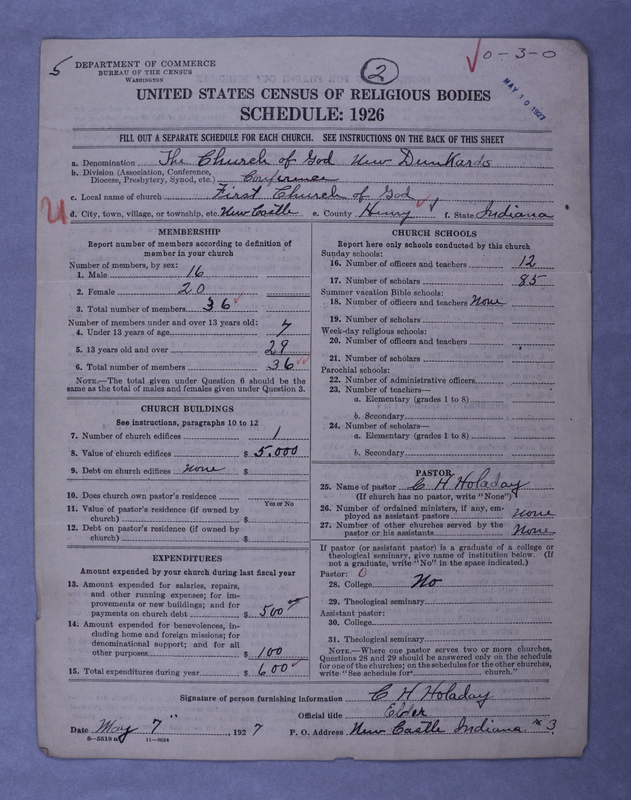 5
DEPARTMENT OF COMMERCE
BUREAU OF THE CENSUS
WASHINGTON
2
0-3-0
MAY 10 1927
UNITED STATES CENSUS OF RELIGIOUS BODIES
SCHEDULE: 1926
FILL OUT A SEPARATE SCHEDULE FOR EACH CHURCH. SEE INSTRUCTIONS ON THE BACK OF THIS SHEET
a. Denomination The Church of God New Dunkards
b. Division (Association, Conference, Diocese, Presbytery, Synod, etc.) Conference
c. Local name of church First Church of God
d. City, town, village, or township, etc. New Castle e. County Henry f. State Indiana
MEMBERSHIP
Report number of members according to definition of
member in your church
Number of members, by sex:
1. Male 16
2. Female 20
3. Total number of members 36
Number of members under and over 13 years old:
4. Under 13 years of age 7
5. 13 years old and over 29
6. Total number of members 36
NOTE.—The total given under Question 6 should be the
same as the total of males and females given under Question 3.
CHURCH BUILDINGS
See instructions, paragraphs 10 to 12
7. Number of church edifices 1
8. Value of church edifices $ 5.000
9. Debt on church edifices none $
10. Does church own pastor's residence
Yes or No
11. Value of pastor's residence (if owned by
church) $
12. Debt on pastor's residence (if owned by
church) $
EXPENDITURES
Amount expended by your church during last fiscal year
13. Amount expended for salaries, repairs,
and other running expenses; for im-
provements or new buildings; and for
payments on church debt $ 500
14. Amount expended for benevolences, in-
cluding home and foreign missions; for
denominational support; and for all
other purposes $ 100
15. Total expenditures during year $ 600
CHURCH SCHOOLS
Report here only schools conducted by this church
Sunday schools:
16. Number of officers and teachers 12
17. Number of scholars 85
Summer vacation Bible schools:
18. Number of officers and teachers None
19. Number of scholars
Week-day religious schools:
20. Number of officers and teachers
21. Number of scholars
Parochial schools:
22. Number of administrative officers
23. Number of teachers—
a. Elementary (grades 1 to 8)
b. Secondary
24. Number of scholars—
a. Elementary (grades 1 to 8)
b. Secondary
PASTOR
25. Name of pastor C H Holaday
(If church has no pastor, write "None")
26. Number of ordained ministers, if any, em-
ployed as assistant pastors none
27. Number of other churches served by the
pastor or his assistants None
If pastor (or assistant pastor) is a graduate of a college or
theological seminary, give name of institution below. (If
not a graduate, write "No" in the space indicated.)
Pastor: 0
28. College No
29. Theological seminary
Assistant pastor:
30. College
31. Theological seminary
NOTE.—Where one pastor serves two or more churches,
Questions 28 and 29 should be answered only on the schedule
for one of the churches; on the schedules for the other churches,
write "See schedule for church."
Signature of person furnishing information C H Holaday
Official title Elder
Date May 7", 1927 P. O. Address New Castle Indiana. 3
8-5518 a 11-9024